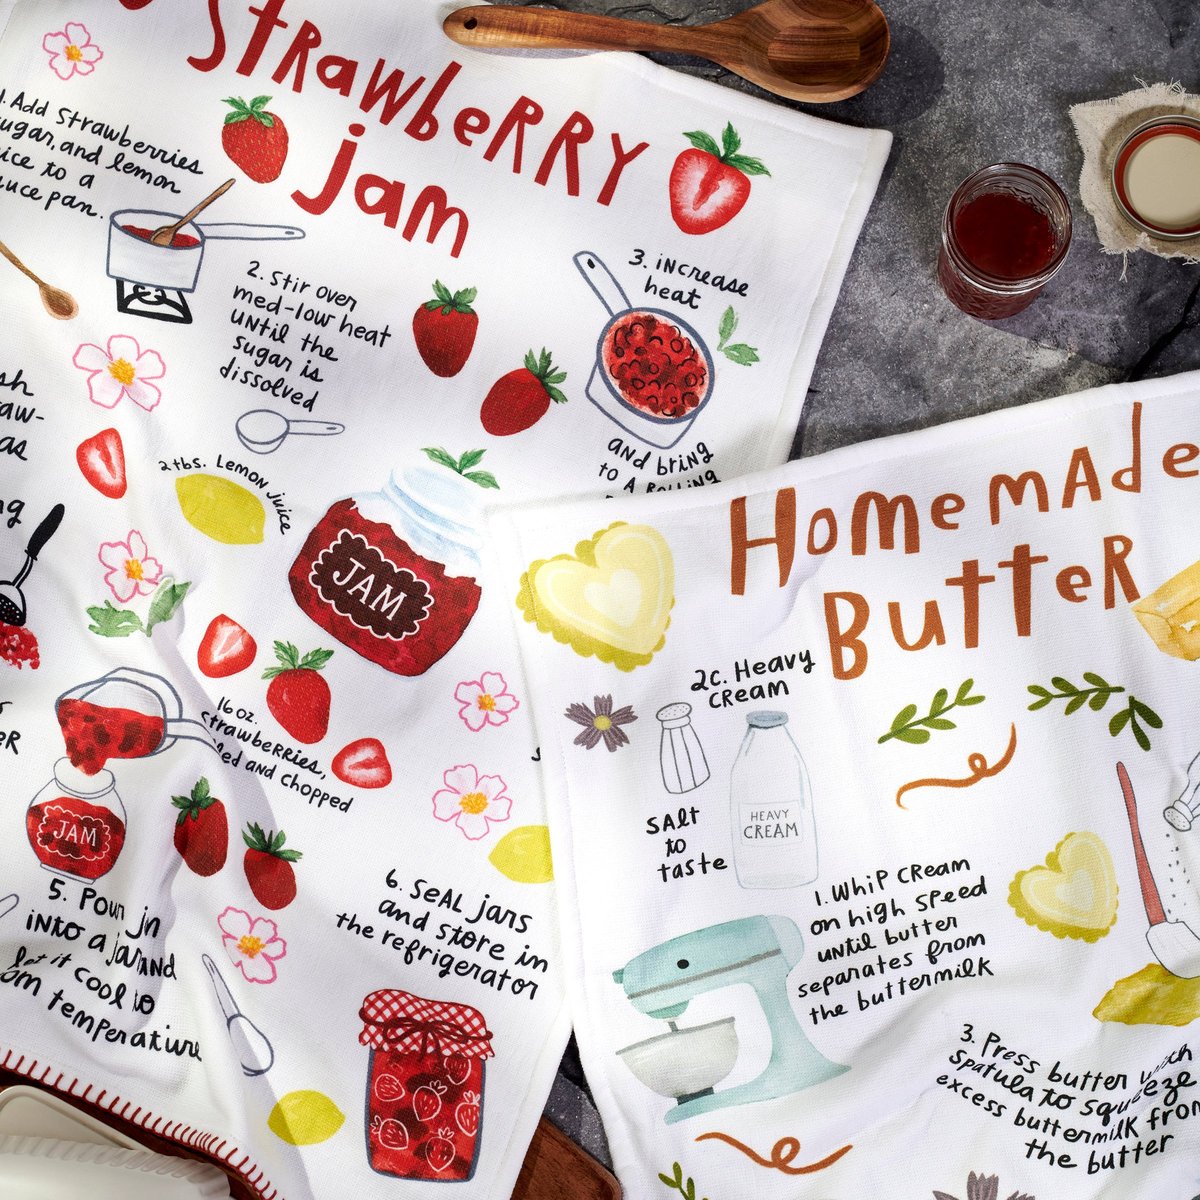 Strawberry
Jam
1. Add strawberries
sugar, and lemon
to a
pan.
2. Stir over
med-low heat
until the
sugar is
dissolved
3. increase
heat
and bring
to A Rolling
2 tbs. Lemon juice
JAM
16 oz.
strawberries,
and chopped
JAM
5. Pour jn
into a jar and
let it cool to
temperature
6. Seal jars
and store in
the refrigerator
Homemade
Butter
2c. Heavy
Cream
Salt
to
taste
HEAVY
CREAM
1. Whip cream
on high speed
until butter
separates from
the buttermilk
3. Press butter
spatula to squeeze
excess buttermilk from
the butter